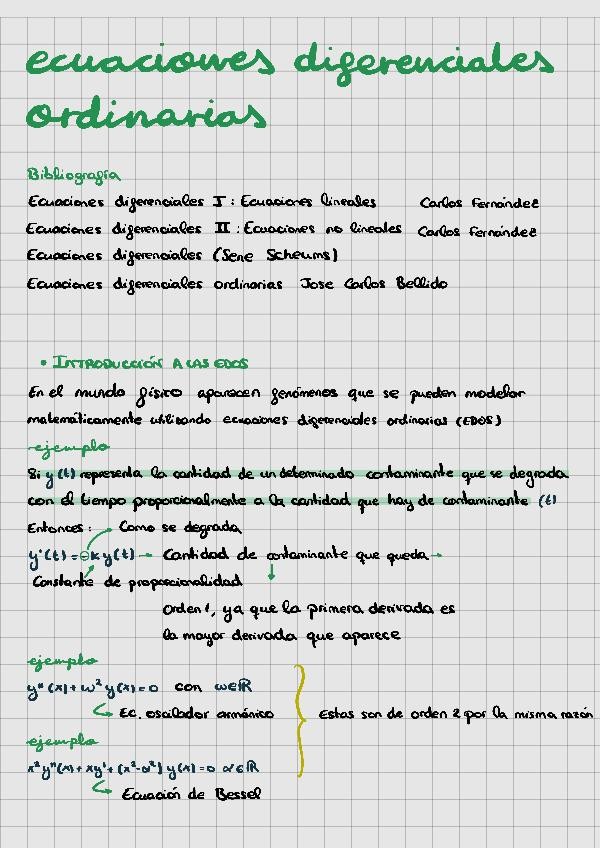 ecuaciones diferenciales
ordinarias
Bibliografía
Ecuaciones diferenciales I : Ecuaciones lineales Carlos Fernández
Ecuaciones diferenciales II : Ecuaciones no lineales Carlos Fernández
Ecuaciones diferenciales (Serie Scheums)
Ecuaciones diferenciales ordinarias Jose Carlos Bellido
• INTRODUCCIÓN A LAS EDOS
En el mundo físico aparecen fenómenos que se pueden modelar
matemáticamente utilizando ecuaciones diferenciales ordinarias (EDOS)
ejemplo
Si y(t) representa la cantidad de un determinado contaminante que se degrada
con el tiempo proporcionalmente a la cantidad que hay de contaminante (t)
Entonces: Como se degrada
y'(t) = -k y(t) → Cantidad de contaminante que queda →
Constante de proporcionalidad ↓
Orden 1, ya que la primera derivada es
la mayor derivada que aparece
ejemplo
y''(x) + ω² y(x) = 0 con ω∈ℝ
Ec. oscilador armónico Estas son de orden 2 por la misma razón
ejemplo
x² y''(x) + xy' + (x²-α²) y(x) = 0 α∈ℝ
Ecuación de Bessel